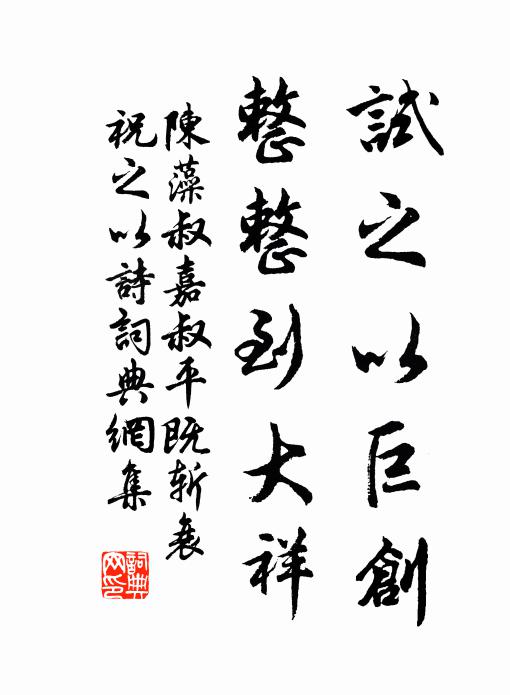 試之以巨創
整整到大祥
陳藻叔嘉叔平既斬衰
祝之以詩詞典網集
詞典網印